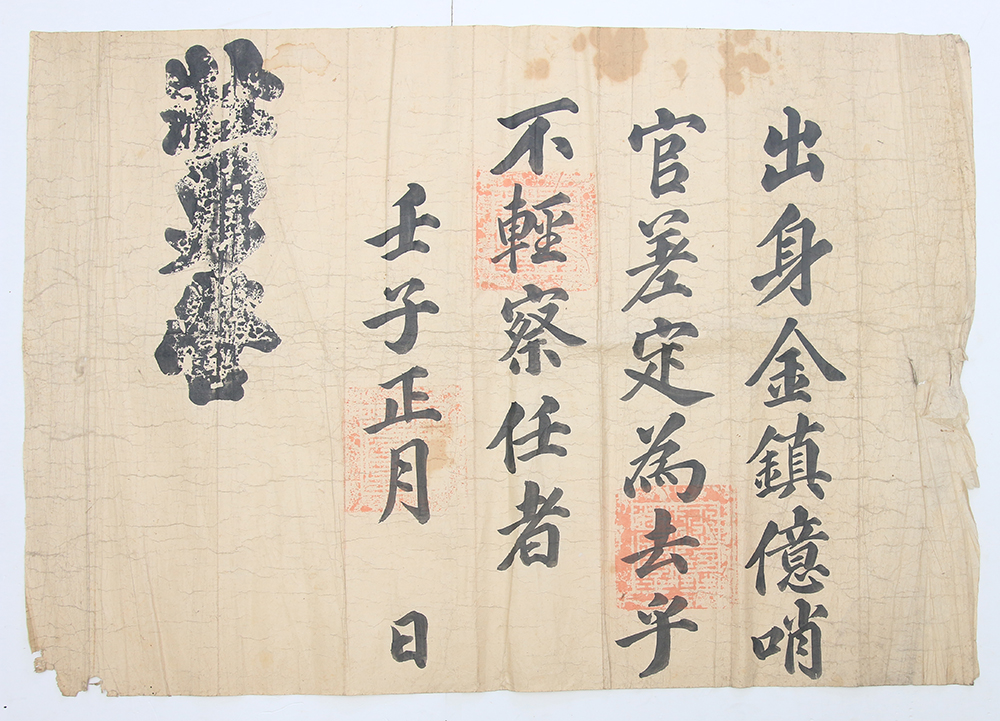 出身金鎮億哨
官差定為去乎
不輕察任者
壬子正月 日